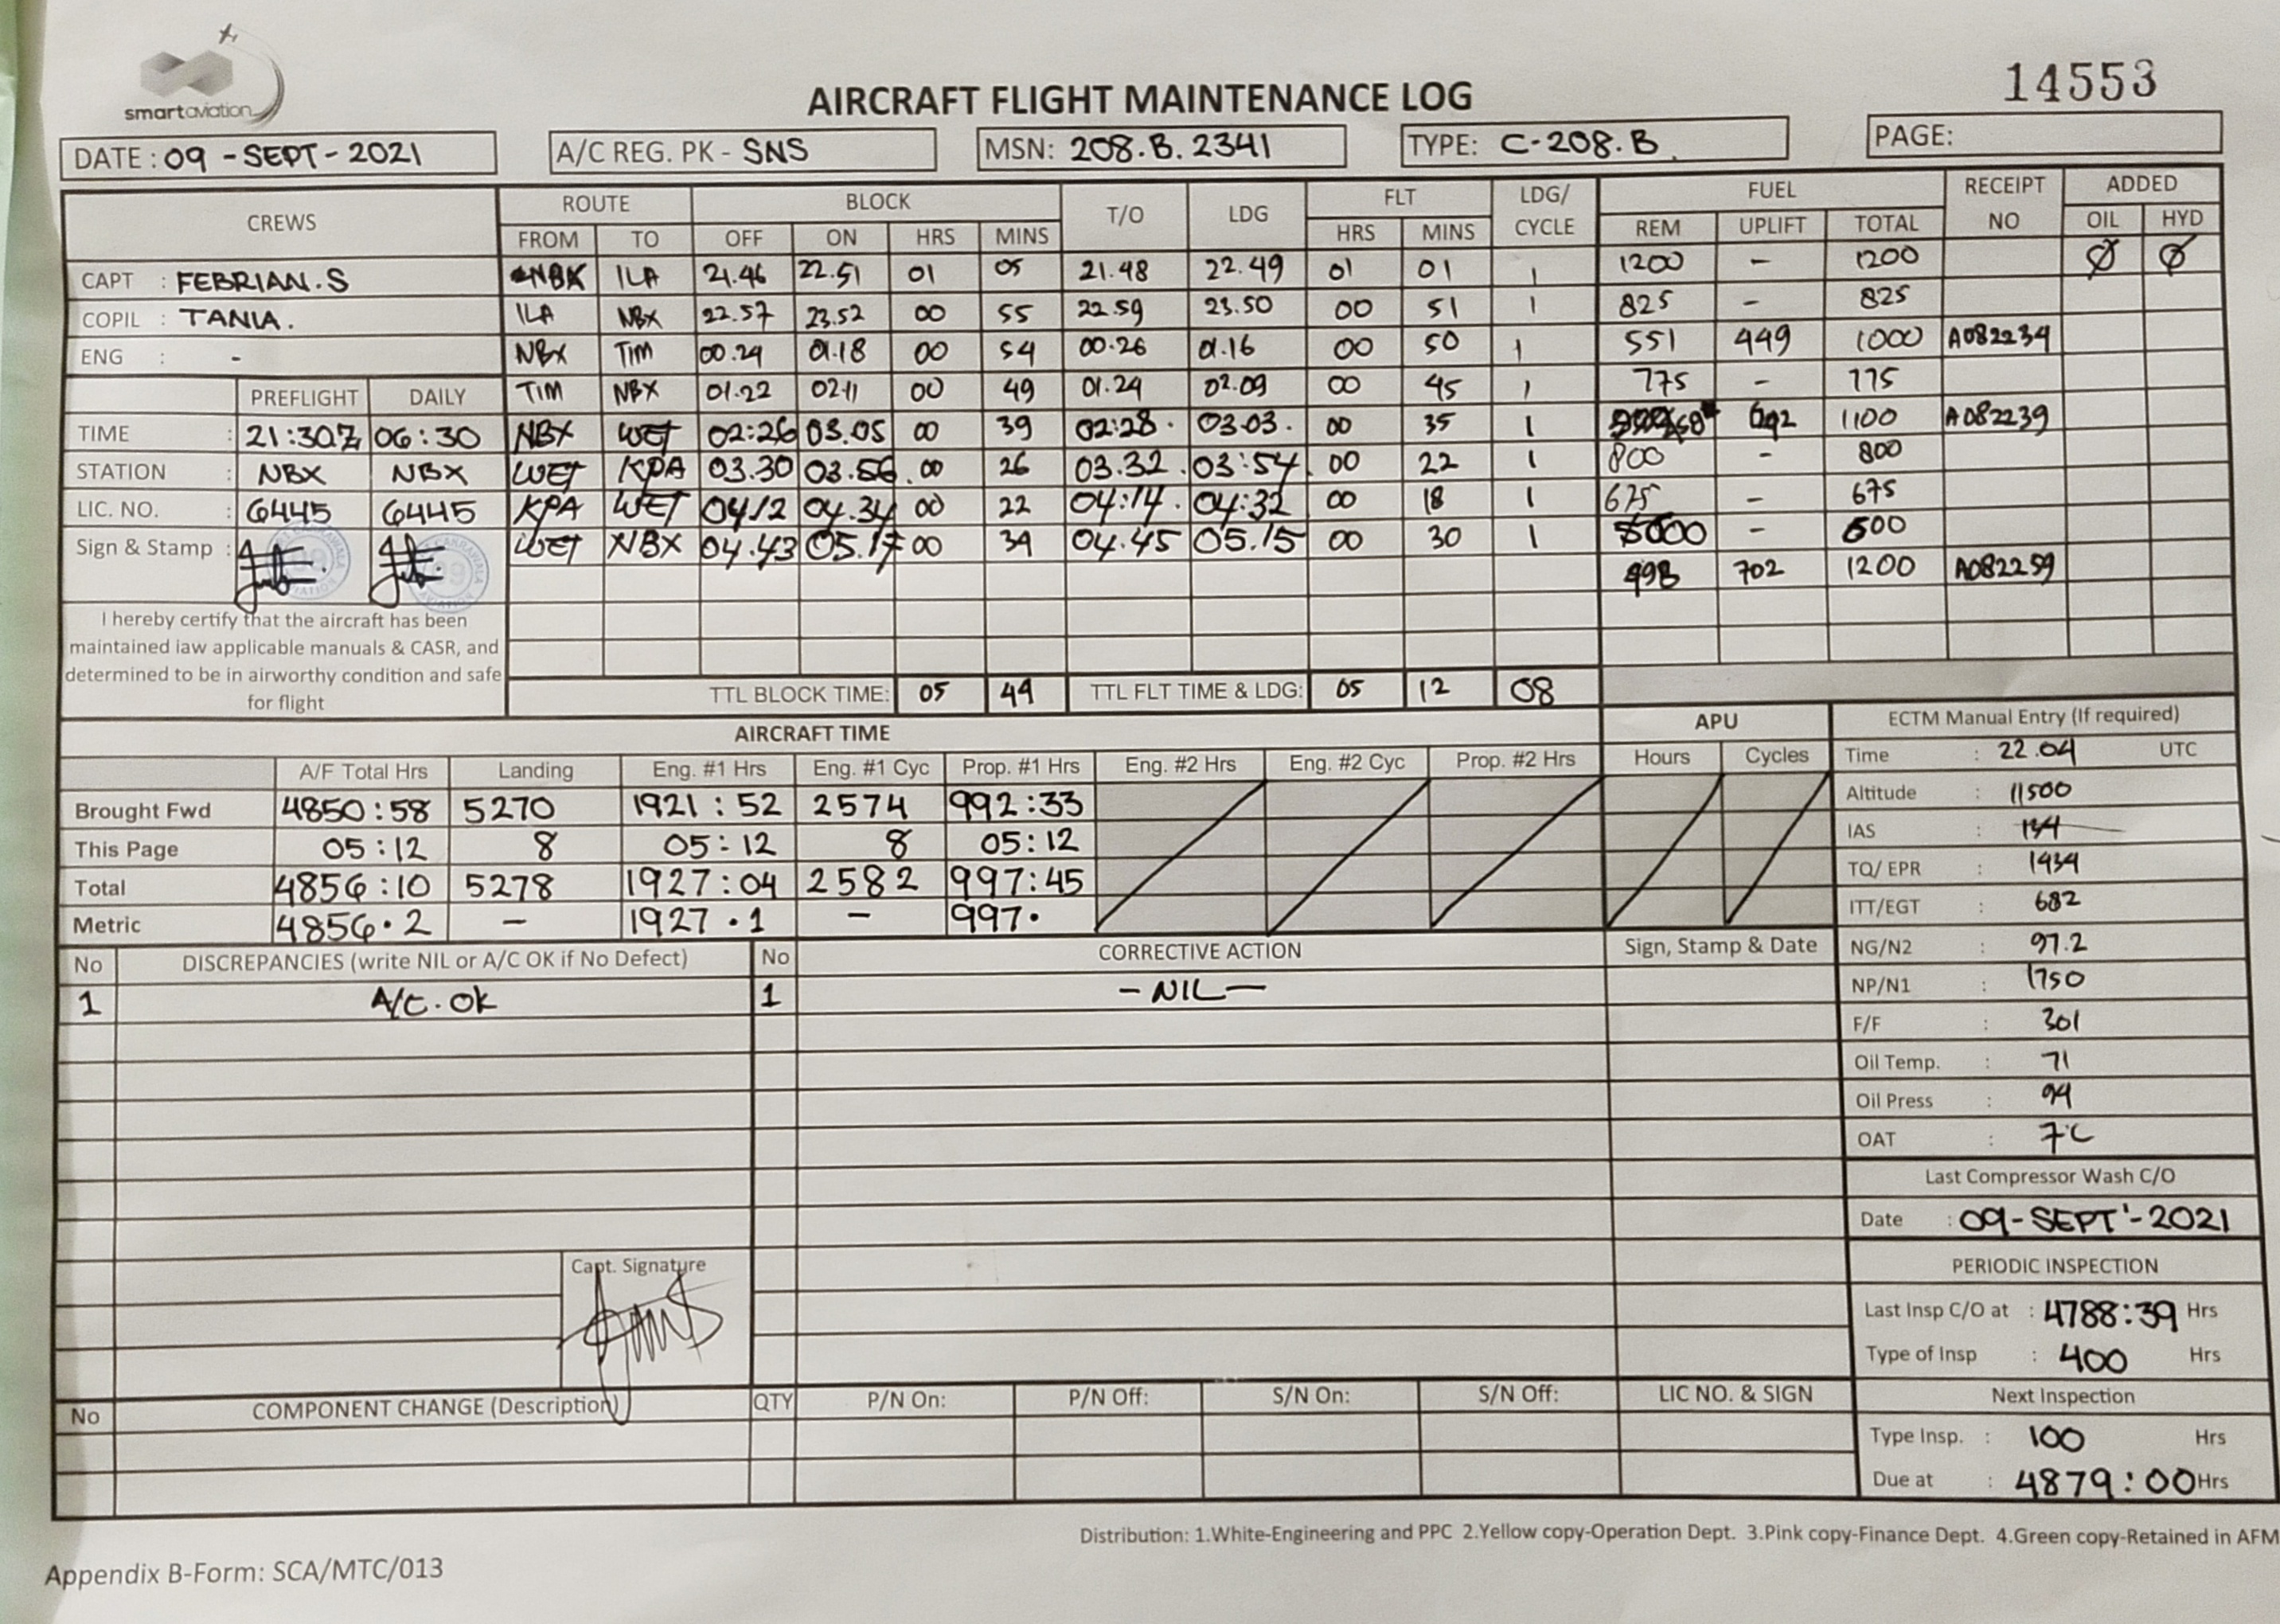 smartaviation
AIRCRAFT FLIGHT MAINTENANCE LOG
14553
DATE : 09 - SEPT - 2021
A/C REG. PK - SNS
MSN: 208.B.2341
TYPE: C-208.B
PAGE:
CREWS
ROUTE BLOCK T/O LDG FLT LDG/ CYCLE FUEL RECEIPT NO ADDED
FROM TO OFF ON HRS MINS HRS MINS REM UPLIFT TOTAL OIL HYD
CAPT : FEBRIAN.S
COPIL : TANIA.
ENG : -
NBX ILA 21.46 22.51 01 05 21.48 22.49 01 01 1 1200 - 1200 Ø Ø
ILA NBX 22.57 23.52 00 55 22.59 23.50 00 51 1 825 - 825
NBX TIM 00.24 01.18 00 54 00.26 01.16 00 50 1 551 449 1000 A082234
TIM NBX 01.22 02.11 00 49 01.24 02.09 00 45 1 775 - 775
NBX WET 02:26 03.05 00 39 02:28. 03.03. 00 35 1 1100 A082239
WET KPA 03.30 03.56. 00 26 03.32. 03:54. 00 22 1 800 - 800
KPA WET 04.12 04.34 00 22 04:14. 04:32 00 18 1 675 - 675
WET NBX 04.43 05.17 00 34 04.45 05.15 00 30 1 - 600
498 702 1200 A082259
PREFLIGHT DAILY
TIME : 21:30Z 06:30
STATION : NBX NBX
LIC. NO. : 6445 6445
Sign & Stamp :
I hereby certify that the aircraft has been
maintained iaw applicable manuals & CASR, and
determined to be in airworthy condition and safe
for flight
TTL BLOCK TIME: 05 44 TTL FLT TIME & LDG: 05 12 08
AIRCRAFT TIME
APU
A/F Total Hrs Landing Eng. #1 Hrs Eng. #1 Cyc Prop. #1 Hrs Eng. #2 Hrs Eng. #2 Cyc Prop. #2 Hrs Hours Cycles
Brought Fwd 4850:58 5270 1921:52 2574 992:33
This Page 05:12 8 05:12 8 05:12
Total 4856:10 5278 1927:04 2582 997:45
Metric 4856.2 - 1927.1 - 997.
ECTM Manual Entry (If required)
Time : 22.04 UTC
Altitude : 11500
IAS : 134
TQ/ EPR : 1434
ITT/EGT : 682
NG/N2 : 97.2
NP/N1 : 1750
F/F : 301
Oil Temp. : 71
Oil Press : 94
OAT : 7°C
Last Compressor Wash C/O
Date : 09-SEPT'-2021
PERIODIC INSPECTION
Last Insp C/O at : 4788:39 Hrs
Type of Insp : 400 Hrs
Next Inspection
Type Insp. : 100 Hrs
Due at : 4879:00 Hrs
No DISCREPANCIES (write NIL or A/C OK if No Defect) No CORRECTIVE ACTION Sign, Stamp & Date
1 A/C. OK 1 - NIL -
Capt. Signature
No COMPONENT CHANGE (Description) QTY P/N On: P/N Off: S/N On: S/N Off: LIC NO. & SIGN
Distribution: 1.White-Engineering and PPC 2.Yellow copy-Operation Dept. 3.Pink copy-Finance Dept. 4.Green copy-Retained in AFM
Appendix B-Form: SCA/MTC/013